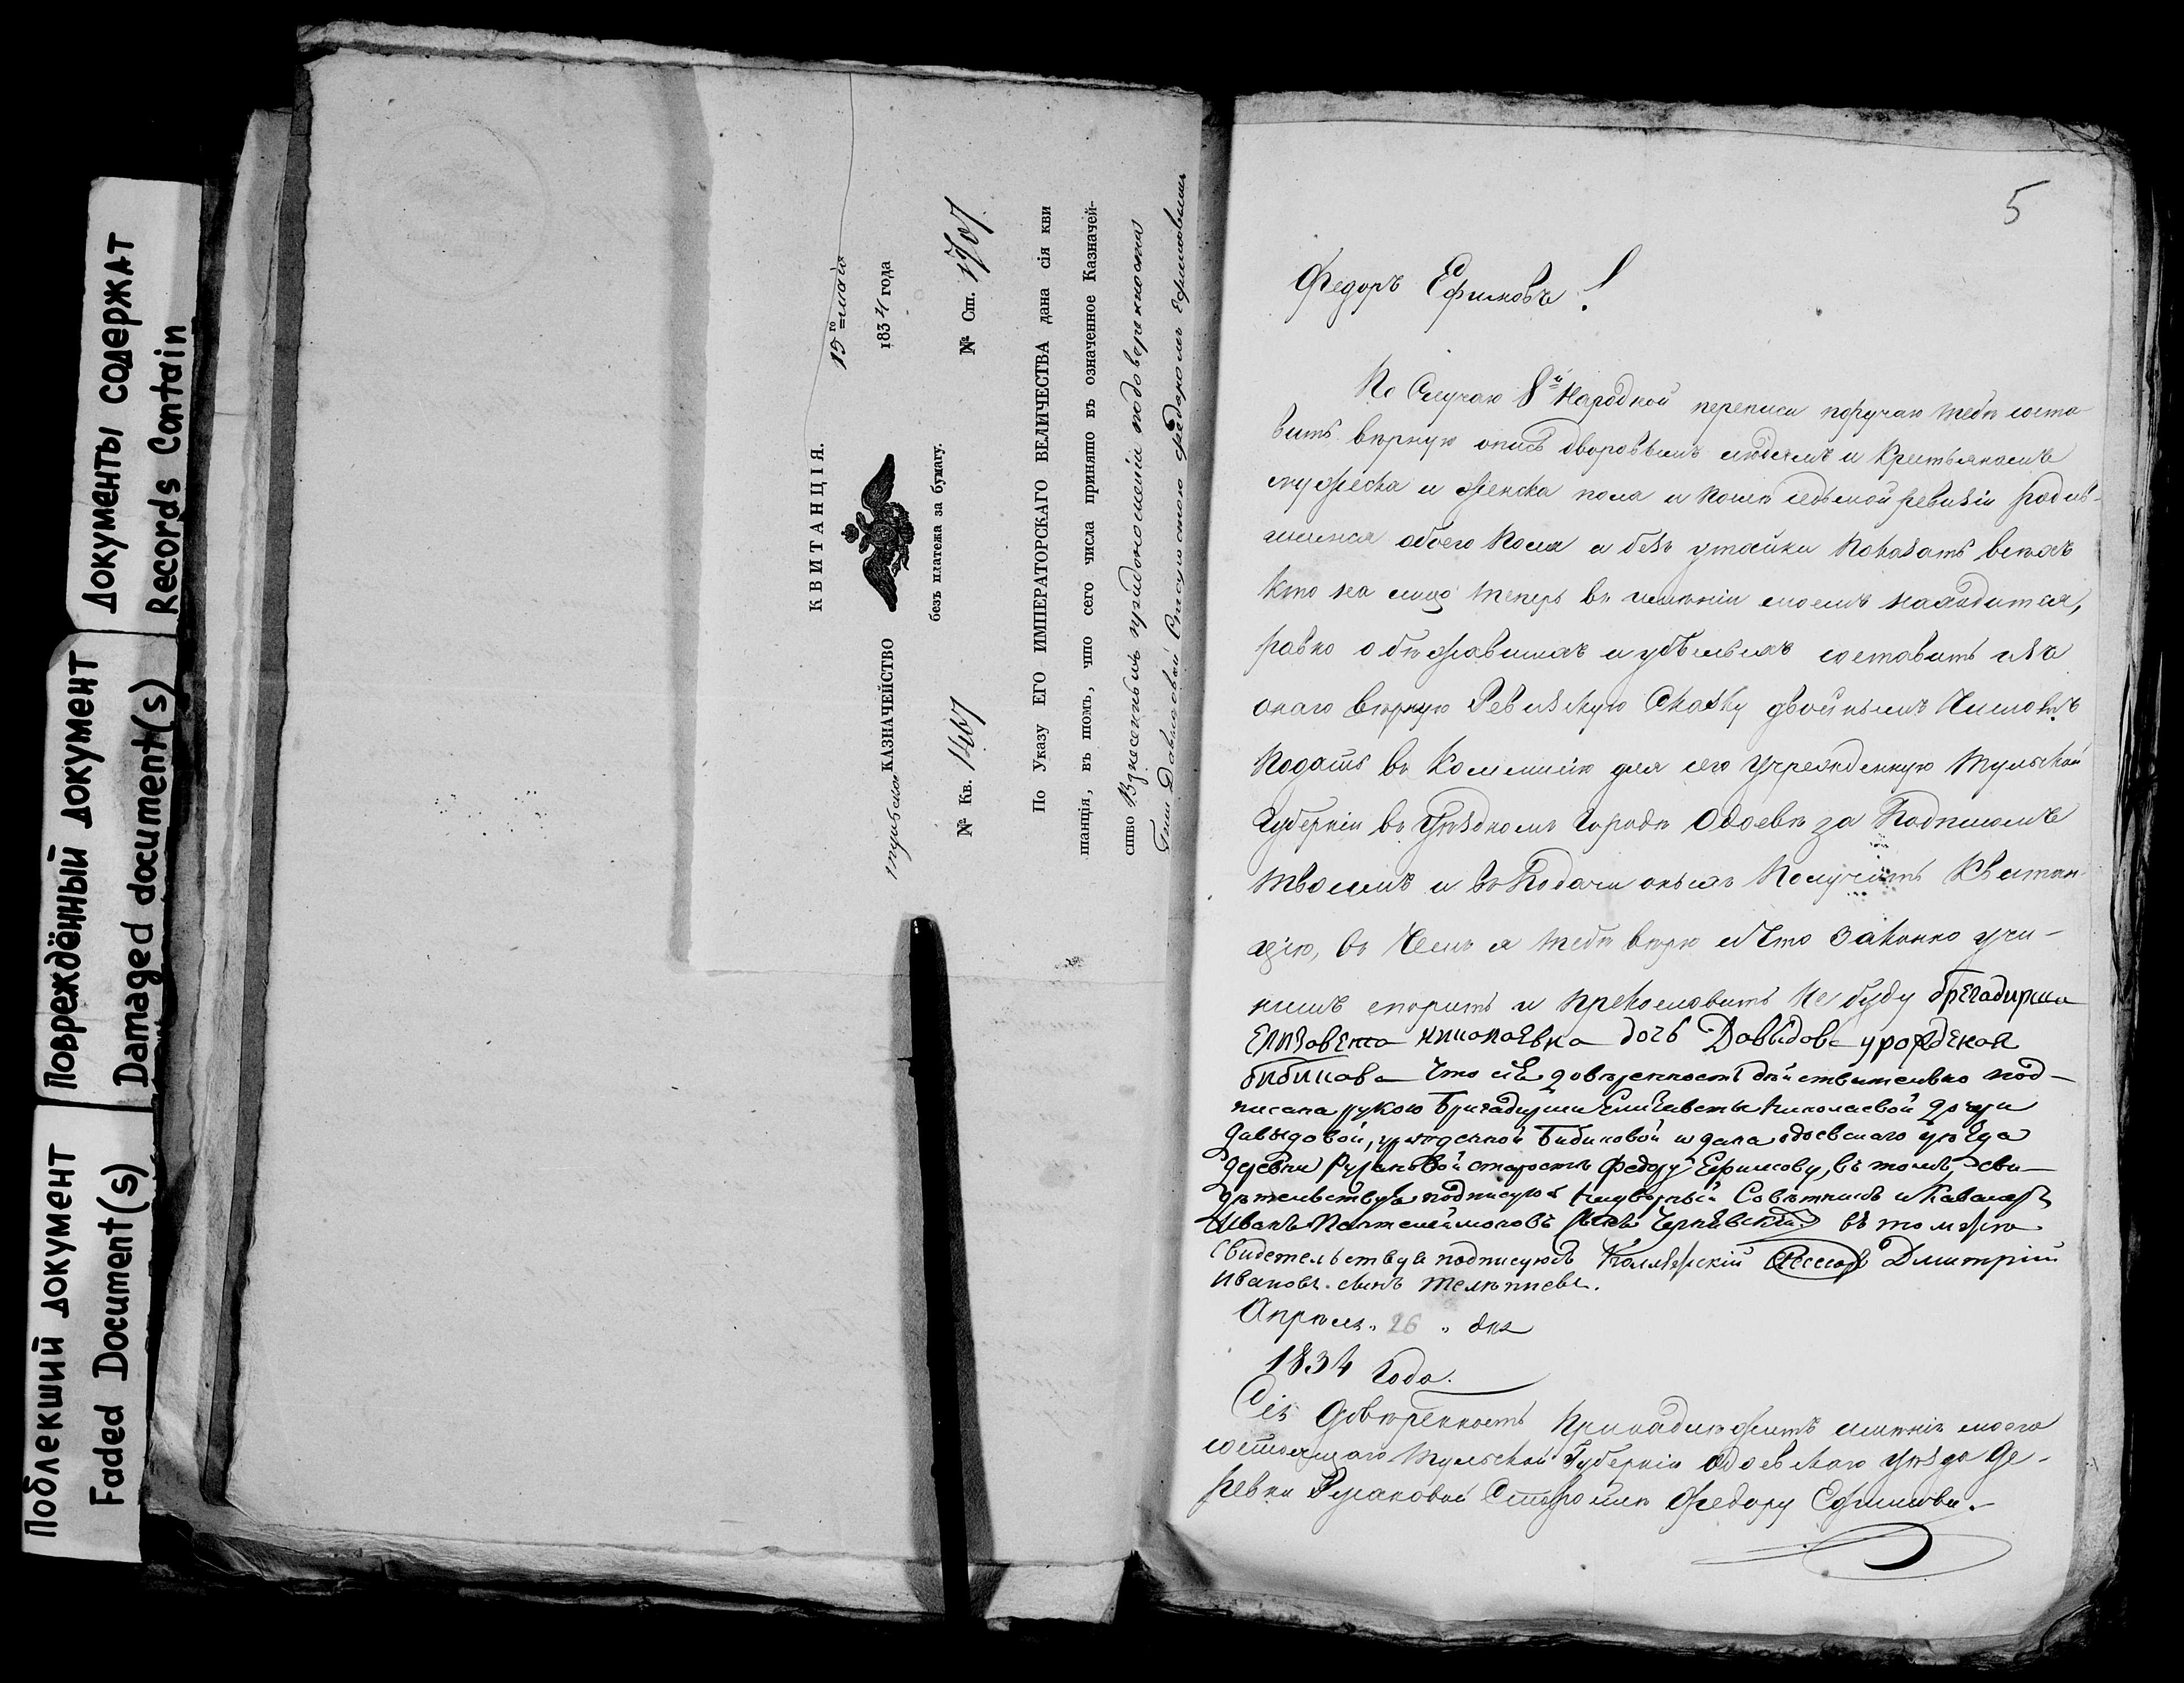 Документы содержат
Records Contain
Повреждённый документ
Damaged document(s)
Поблекший документ
Faded Document(s)
КВИТАНЦІЯ.
15го маія
КАЗНАЧЕЙСТВО
1834 года
безъ платежа за бумагу.
№ Кв. 1467
№ Сп. 1707
По Указу ЕГО ИМПЕРАТОРСКАГО ВЕЛИЧЕСТВА дана сія кви
танція, въ томъ, что сего числа принято въ означенное Казначей-
ство Взнесенныхъ при доношеніи по доверенности
Давыдовой Старостою Федоромъ Ефимовымъ
5
Федоръ Ефимовъ!
По Случаю 8й Народной переписи поручаю тебѣ соста
вить вѣрную опись дворовымъ людямъ и Крестьяномъ
мужеска и женска пола и после седьмой ревизіи родив-
шимся обоего Пола и безъ утайки Показать всехъ
Кто на лицо теперь въ имѣніи моемъ находится,
равно о бѣжавшихъ и убылыхъ составить изъ
онаго вѣрную Ревизскую Сказку двойнымъ Числомъ
Подать въ Коммисію для сего Учрежденную Тульской
Губерніи въ Уѣздномъ Городѣ Одоевѣ за Подписомъ
твоимъ и въ Подачи оныхъ Получить Квитан
цію, въ Чемъ я тебѣ вѣрю и Что Законно учи-
нишъ спорить и прекословить Не буду бргадирша
Елизавета николаевна дочь Давыдова урожденая
бибикова Что сія довѣренность дѣйствительно под-
писана рукою Бригадирши Елизаветы Николаевой дочери
Давыдовой, урожденной Бибиковой и дана одоевскаго уѣзда
деревни Русановой старостѣ Федору Ефимову, въ томъ, сви-
дѣтельствуя подписуюсь Надворный Совѣтникъ и Кавалеръ
Иванъ Пантелеймоновъ сынъ Чернявскій въ томъ же
свидетельствуя подписуюсь Коллежскій Асессоръ Дмитрій
Ивановъ сынъ Телѣпневъ.
Апрѣля 26 дня
1834 Года.
Сія Довѣренность Принадлежитъ имѣнія моего
состоящаго Тульской Губерніи Одоевскаго уѣзда Де-
ревни Русановой Старостѣ Федору Ефимову.